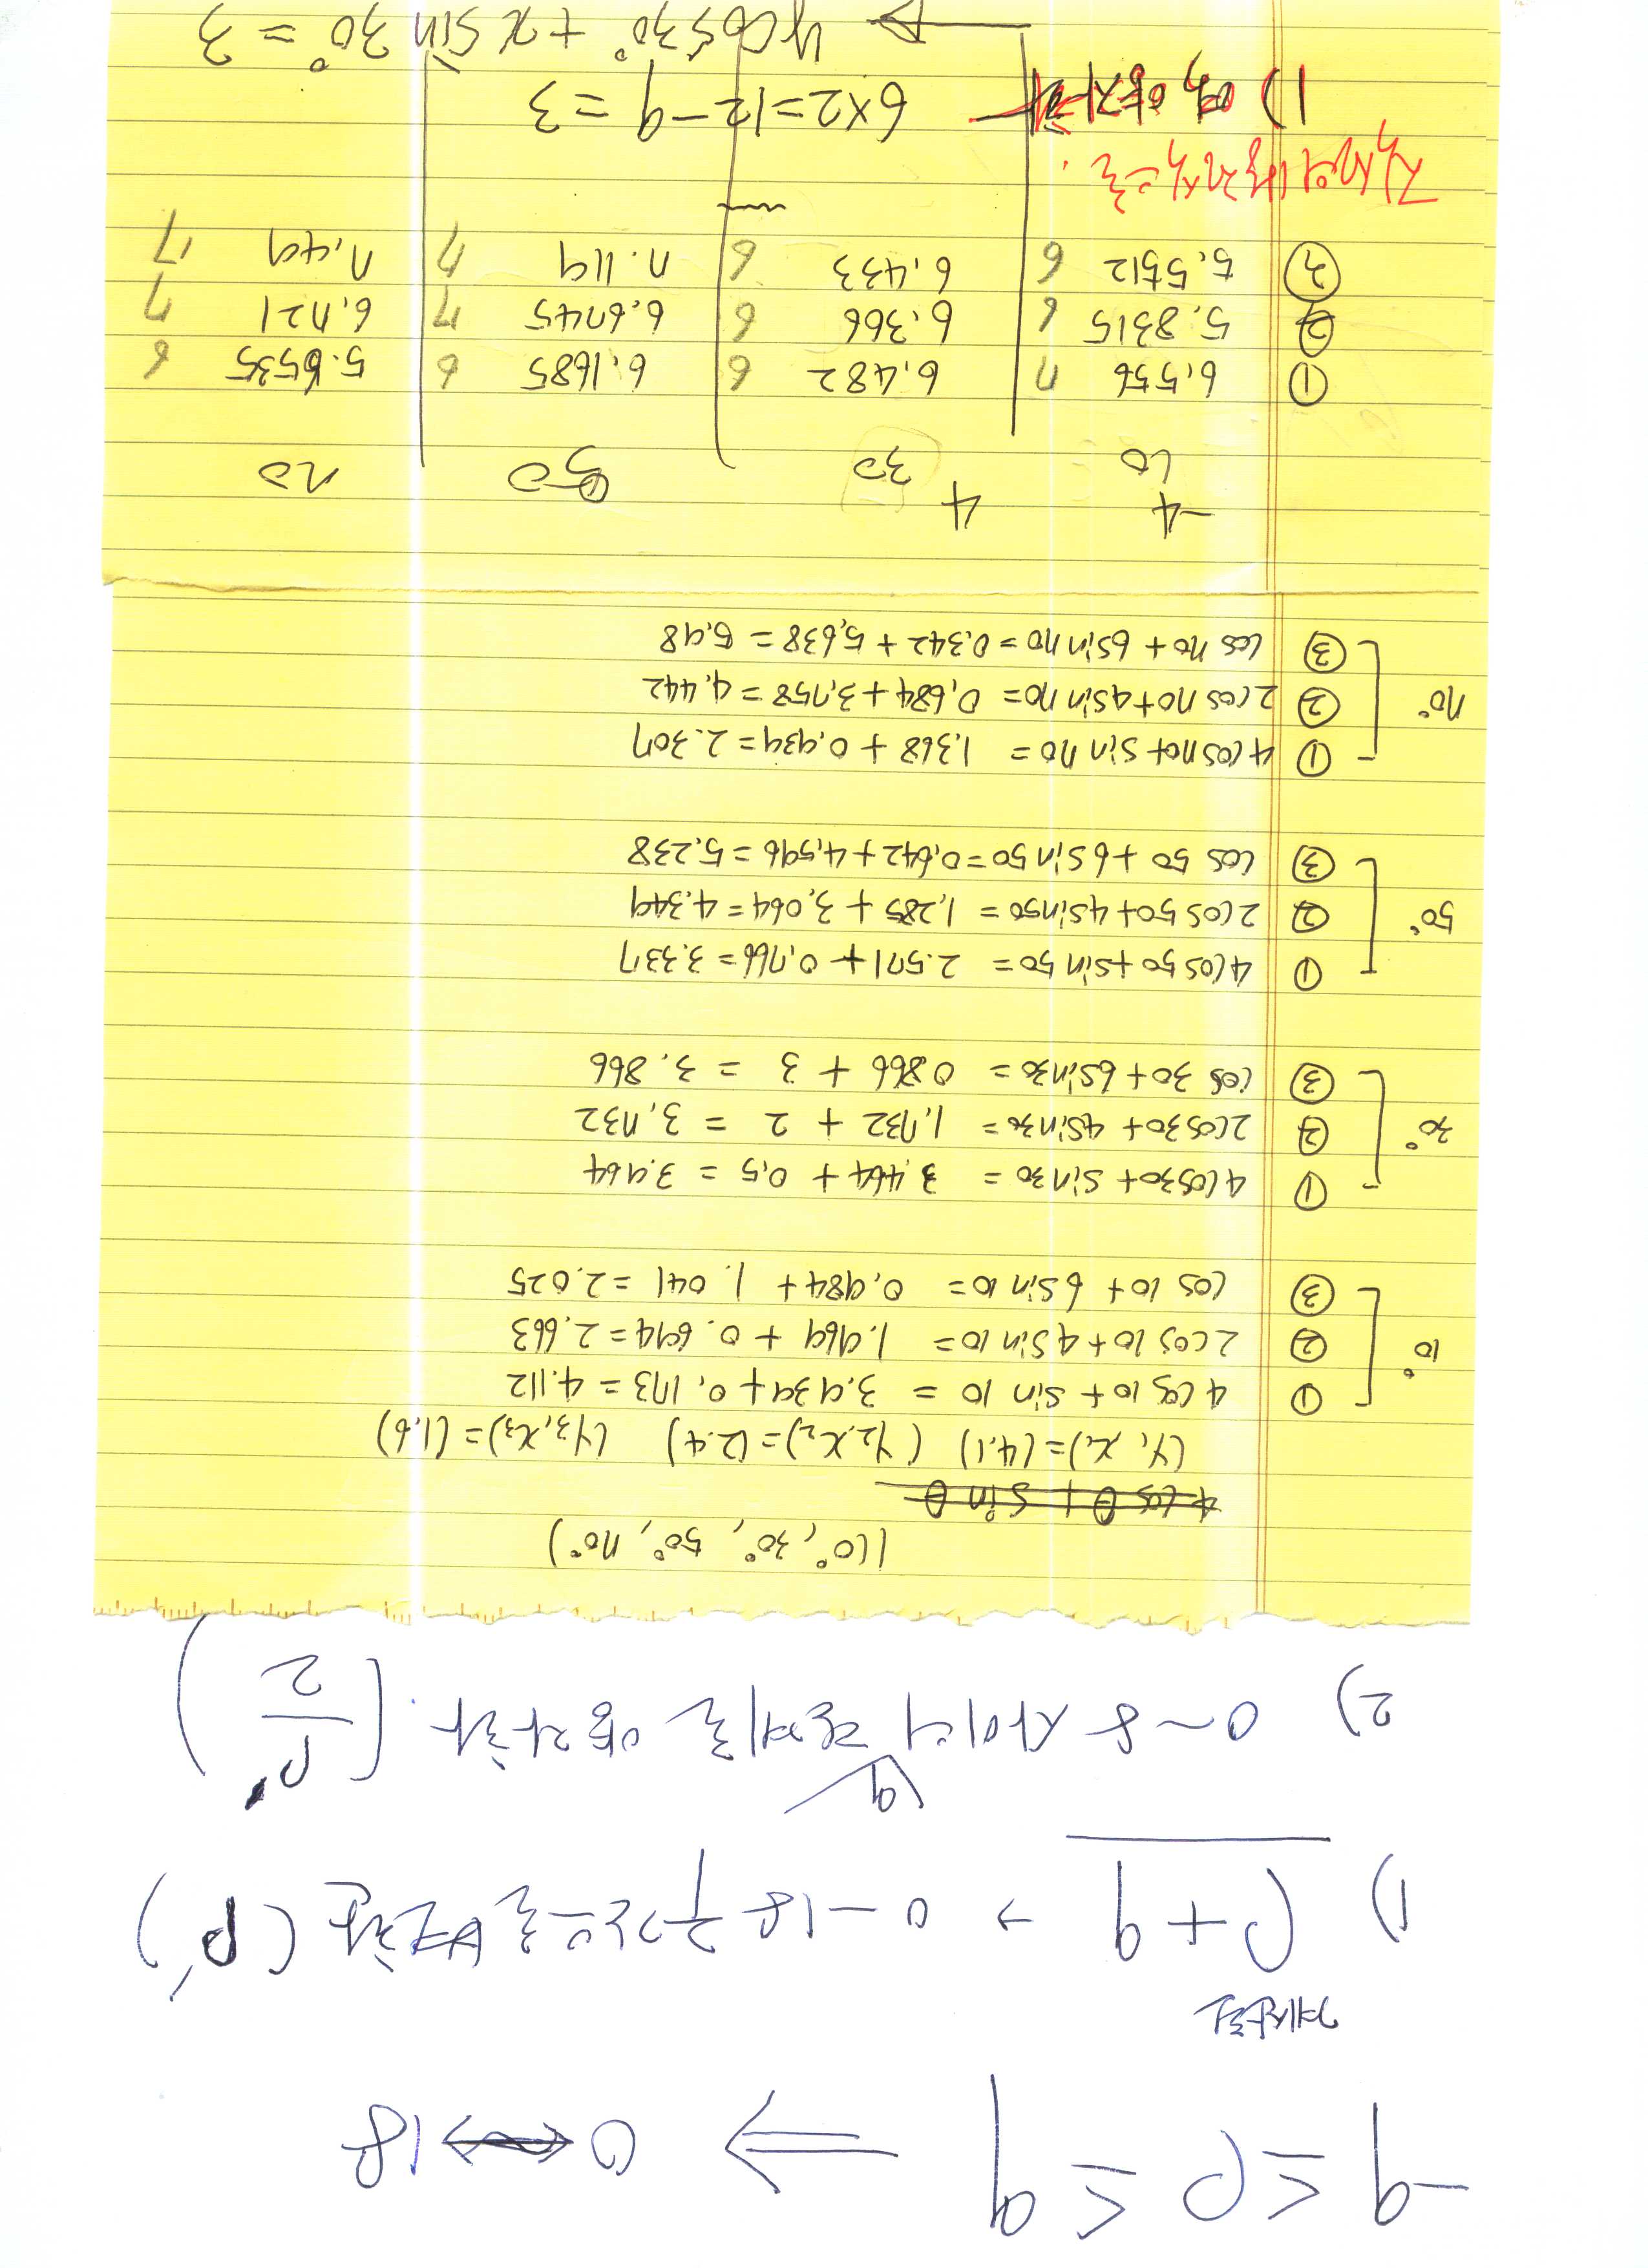 -9 ≤ ρ ≤ 9 ⟹ 0 ⟷ 18
계산된
1) ρ + 9 → 0 - 18 구간으로 변환 (ρ')
9
2) 0 ~ 8 사이의 단계로 양자화. (ρ'/2)
(10°, 30°, 50°, 70°)
4 cos θ + sin θ
(y₁ x₁)=(4.1) (y₂,x₂)=(2.4) (y₃,x₃)=(1.6)
① 4 cos 10 + sin 10 = 3.939 + 0.173 = 4.112
10° ② 2 cos 10 + 4 sin 10 = 1.969 + 0.694 = 2.663
③ cos 10 + 6 sin 10 = 0.984 + 1.041 = 2.025
① 4 cos 30 + sin 30 = 3.464 + 0.5 = 3.964
30° ② 2 cos 30 + 4 sin 30 = 1.732 + 2 = 3.732
③ cos 30 + 6 sin 30 = 0.866 + 3 = 3.866
① 4 cos 50 + sin 50 = 2.571 + 0.766 = 3.337
50° ② 2 cos 50 + 4 sin 50 = 1.285 + 3.064 = 4.349
③ cos 50 + 6 sin 50 = 0.642 + 4.596 = 5.238
① 4 cos 70 + sin 70 = 1.368 + 0.939 = 2.307
70° ② 2 cos 70 + 4 sin 70 = 0.684 + 3.758 = 4.442
③ cos 70 + 6 sin 70 = 0.342 + 5.638 = 5.98
-4 4
10 30 50 70
① 6.556 7 6.482 6 6.1685 6 5.6535 6
② 5.8315 6 6.366 6 6.6745 7 6.721 7
③ 5.5512 6 6.433 6 7.119 7 7.49 7
직선의 방정식으로.
1) 역 양자화 6×2=12-9=3
→ y cos 30° + x sin 30° = 3